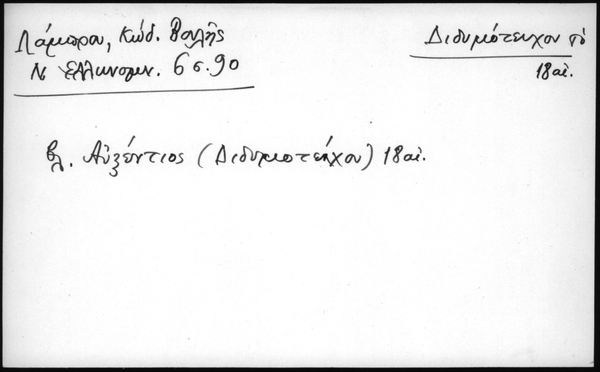 Λάμπρου, Κώδ. Βουλῆς
Ν. Ἑλληνομν. 6 σ. 90
Διδυμότειχον τὸ
18 αἰ.
βλ. Αὐξέντιος (Διδυμοτείχου) 18 αἰ.